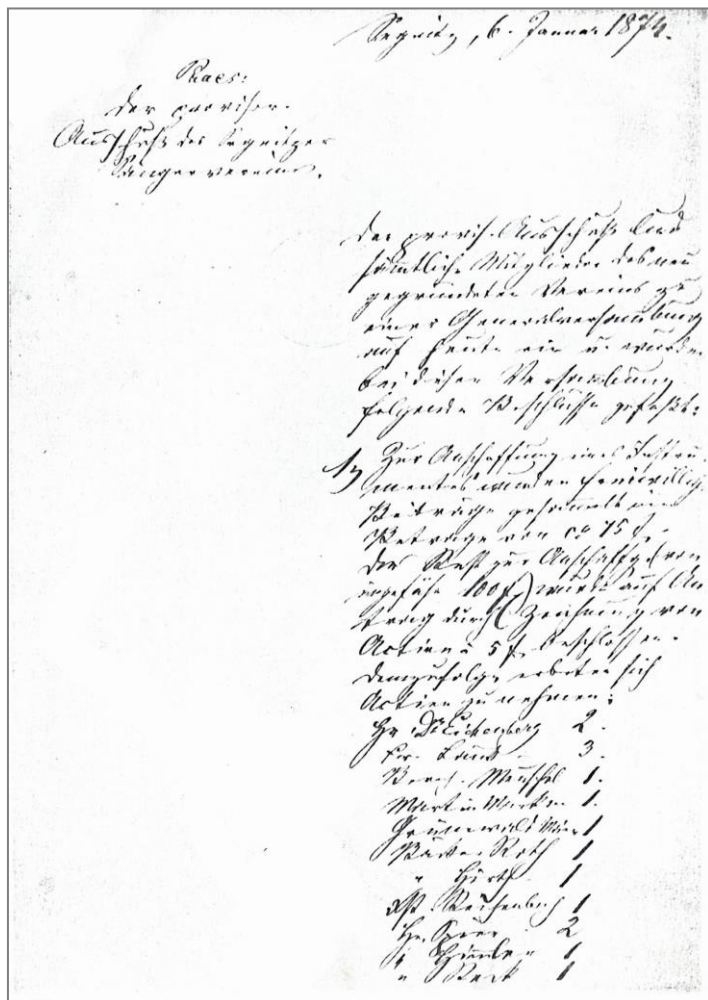 Segnitz, 6. Januar 1874.
Praes:
Der provisor.
Ausschuß des Segnitzer
Sängervereins.
Der provis. Ausschuß lud
sämtliche Mitglieder des neu
gegründeten Vereins zu
einer Generalversammlung
auf heute ein u. wurden
bei dieser Versammlung
folgende Beschlüsse gefaßt:
1, Zur Anschaffung eines Instru-
mentes wurden freiwillig
Beiträge gesammelt im
Betrage von ca 75 f.
Der Rest zur Anschaffg (von
ungefähr 100 f) wurde auf An-
trag durch Zeichnung von
Actien à 5 f. beschlossen.
Demzufolge erboten sich
Actien zu nehmen:
Hr. Dr. Eichenberg 2.
3.
Meuschel 1.
Martin 1.
Grünewald 1
Bäcker Roth 1
" 1
Reichenbach 1
Hr. Spier 2
" 1
" 1